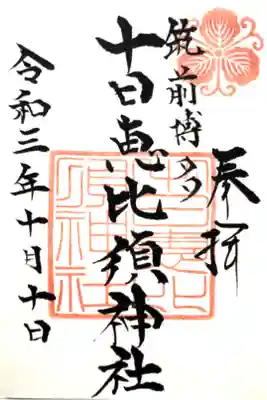 奉拝
筑前博多
十日恵比須神社
令和三年十月十日